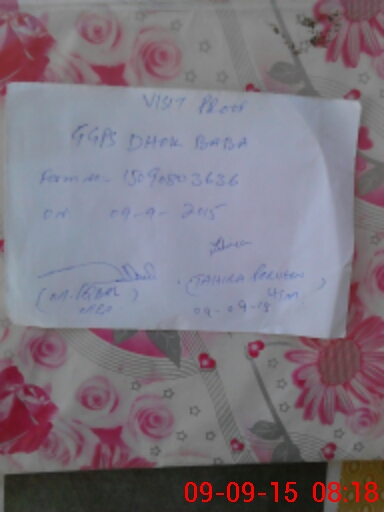 VISIT Proof
GGPS DHOK BABA
Form no- 15090503636
on 09-9-2015
(M. IQBAL)
(TAHIRA PARVEEN)
09-09-15
09-09-15 08:18